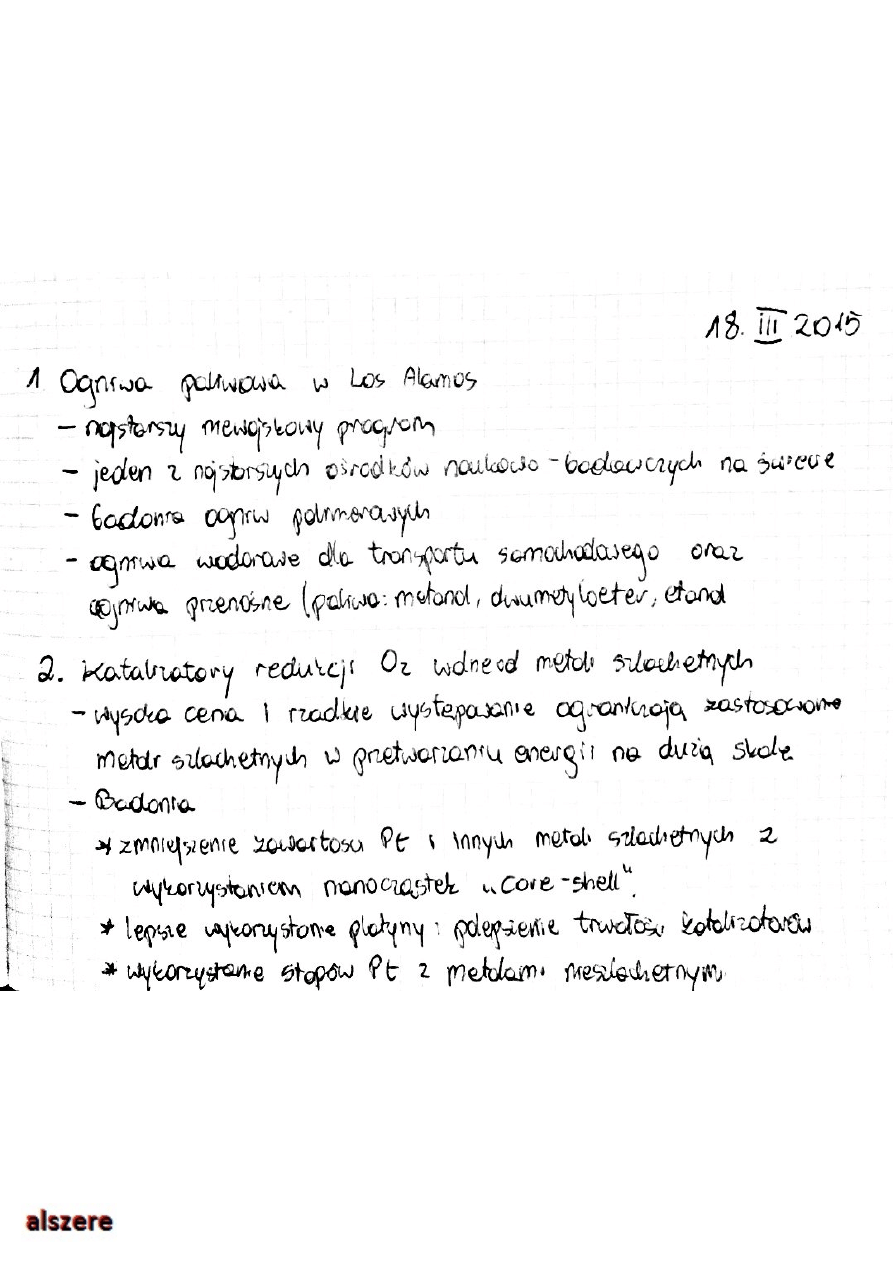 18. III 2015
1 Ogniwa paliwowa w Los Alamos
- najstarszy niewojskowy program
- jeden z najstarszych ośrodków naukowo-badawczych na świecie
- badania ogniw polimerowych
- ogniwa wodorowe dla transportu samochodowego oraz
ogniwa przenośne (paliwa: metanol, dwumetyloeter, etanol
2. Katalizatory redukcji O2 metali szlachetnych
- wysoka cena i rzadkie występowanie ograniczają zastosowanie
metali szlachetnych w przetwarzaniu energii na dużą skalę
- Badania
* zmniejszenie zawartości Pt i innych metali szlachetnych z
wykorzystaniem nanocząstek „core-shell".
* lepsze wykorzystanie platyny i polepszenie trwałości katalizatorów
* wykorzystanie stopów Pt z metalami nieszlachetnymi
alszere